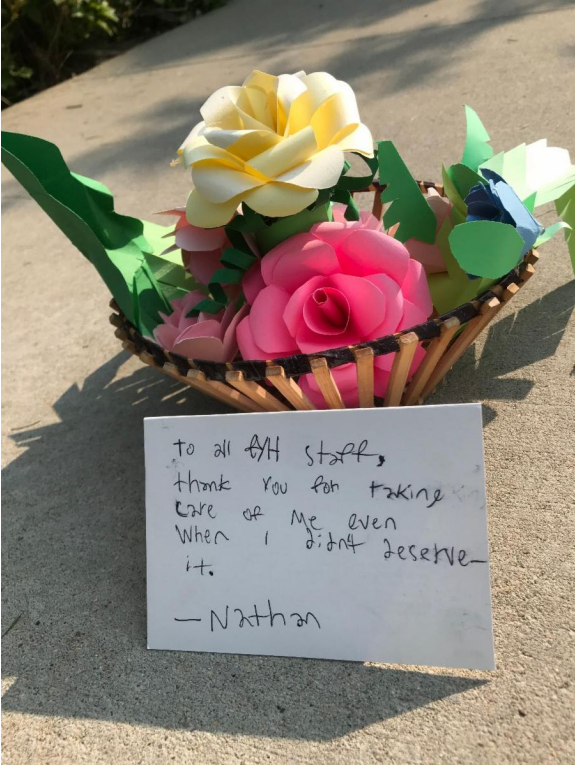 To all staff,
thank You for taking
care of Me even
When I didn't deserve
it.
—Nathan